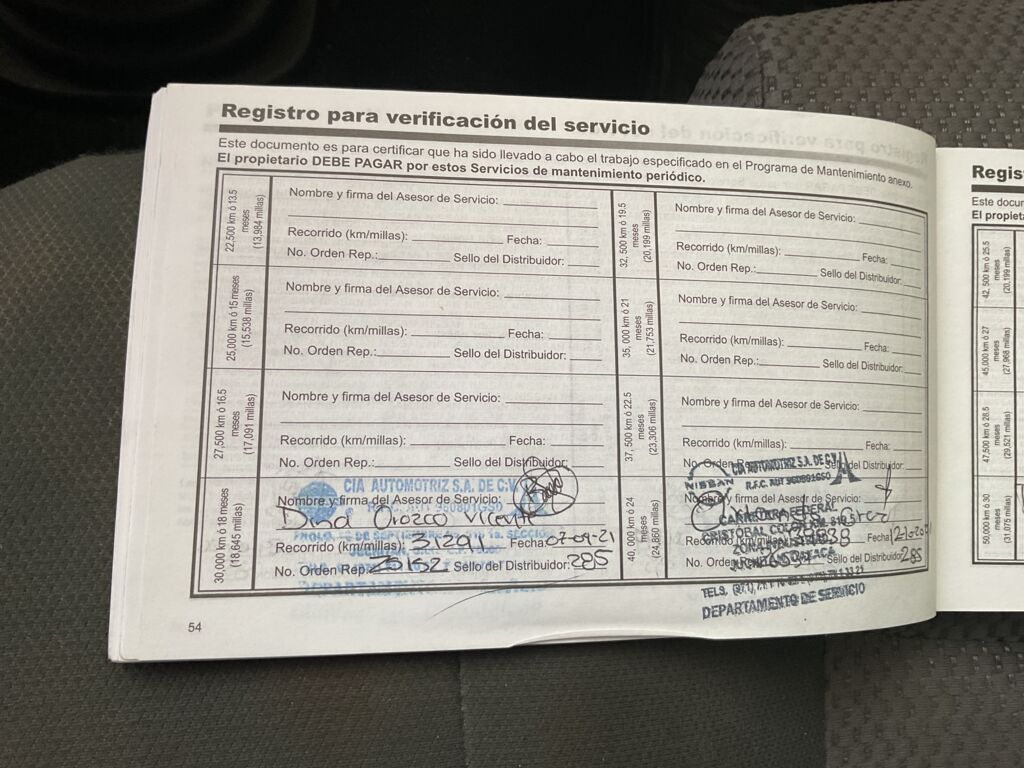 Registro para verificación del servicio
Este documento es para certificar que ha sido llevado a cabo el trabajo especificado en el Programa de Mantenimiento anexo.
El propietario DEBE PAGAR por estos Servicios de mantenimiento periódico.
22,500 km ó 13.5
meses
(13,984 millas)
Nombre y firma del Asesor de Servicio:
Recorrido (km/millas): Fecha:
No. Orden Rep.: Sello del Distribuidor:
25,000 km ó 15 meses
(15,538 millas)
Nombre y firma del Asesor de Servicio:
Recorrido (km/millas): Fecha:
No. Orden Rep.: Sello del Distribuidor:
27,500 km ó 16.5
meses
(17,091 millas)
Nombre y firma del Asesor de Servicio:
Recorrido (km/millas): Fecha:
No. Orden Rep.: Sello del Distribuidor:
30,000 km ó 18 meses
(18,645 millas)
CIA AUTOMOTRIZ S.A. DE C.V.
Nombre y firma del Asesor de Servicio:
Dina Orozco Vicente
Recorrido (km/millas): 31291 Fecha: 07-09-21
No. Orden Rep. Sello del Distribuidor: 285
32, 500 km ó 19.5
meses
(20,199 millas)
Nombre y firma del Asesor de Servicio:
Recorrido (km/millas): Fecha:
No. Orden Rep.: Sello del Distribuidor:
35, 000 km ó 21
meses
(21,753 millas)
Nombre y firma del Asesor de Servicio:
Recorrido (km/millas): Fecha:
No. Orden Rep.: Sello del Distribuidor:
37, 500 km ó 22.5
meses
(23,306 millas)
Nombre y firma del Asesor de Servicio:
Recorrido (km/millas): Fecha:
No. Orden Sello del Distribuidor:
40, 000 km ó 24
meses
(24,860 millas)
NISSAN
CIA AUTOMOTRIZ S.A. DE C.V.
R.F.C. AUT 960801GS0
Nombre y firma del Asesor de Servicio:
CARRETERA FEDERAL
CRISTOBAL COLON
Recorrido Fecha
No. Orden Sello del Distribuidor: 285
TELS.
DEPARTAMENTO DE SERVICIO
54
Regis
Este docur
El propieta
42, 500 km ó 25.5
meses
45,000 km ó 27
meses
(27,968 millas)
47,500 km ó 28.5
meses
(29,521 millas)
50,000 km ó 30
meses
(31,075 millas)